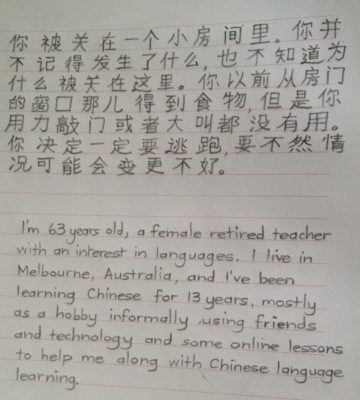 你被关在一个小房间里。你并
不记得发生了什么,也不知道为
什么被关在这里。你以前从房门
的窗口那儿得到食物,但是你
用力敲门或者大叫都没有用。
你决定一定要逃跑,要不然情
况可能会变更不好。
I'm 63 years old, a female retired teacher
with an interest in languages. I live in
Melbourne, Australia, and I've been
learning Chinese for 13 years, mostly
as a hobby informally, using friends
and technology and some online lessons
to help me along with Chinese language
learning.